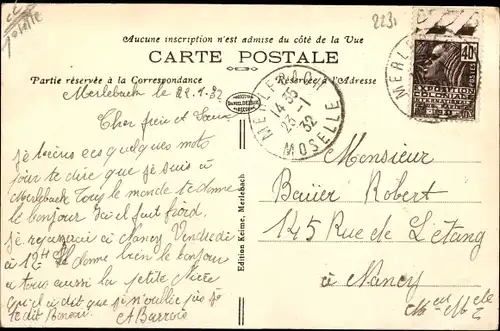 Josette
223,
Aucune inscription n'est admise du côté de la Vue
CARTE POSTALE
Partie réservée à la Correspondance
Réservée à l'Adresse
Merlebach 22.1.32
MERLEBACH
14 35
23-1
32
MOSELLE
MERLE
40c
EXPOSITION
PARIS
1931
Cher frère et Sœur
je t'écris ces quelques mots
pour te dire que je suis à
Merlebach Tous le monde te donne
le bonjour Ici il fait froid
je repasserai à Nancy Vendredi
à 12h donne bien le bonjour
à tous aussi la petite Nièce
qu'il a dit que j'n'oublie pas je
te dit Bonsoir A Barrois
Edition Keime, Merlebach
Monsieur
Bauër Robert
145 Rue de L'étang
à Nancy
M et Mlle